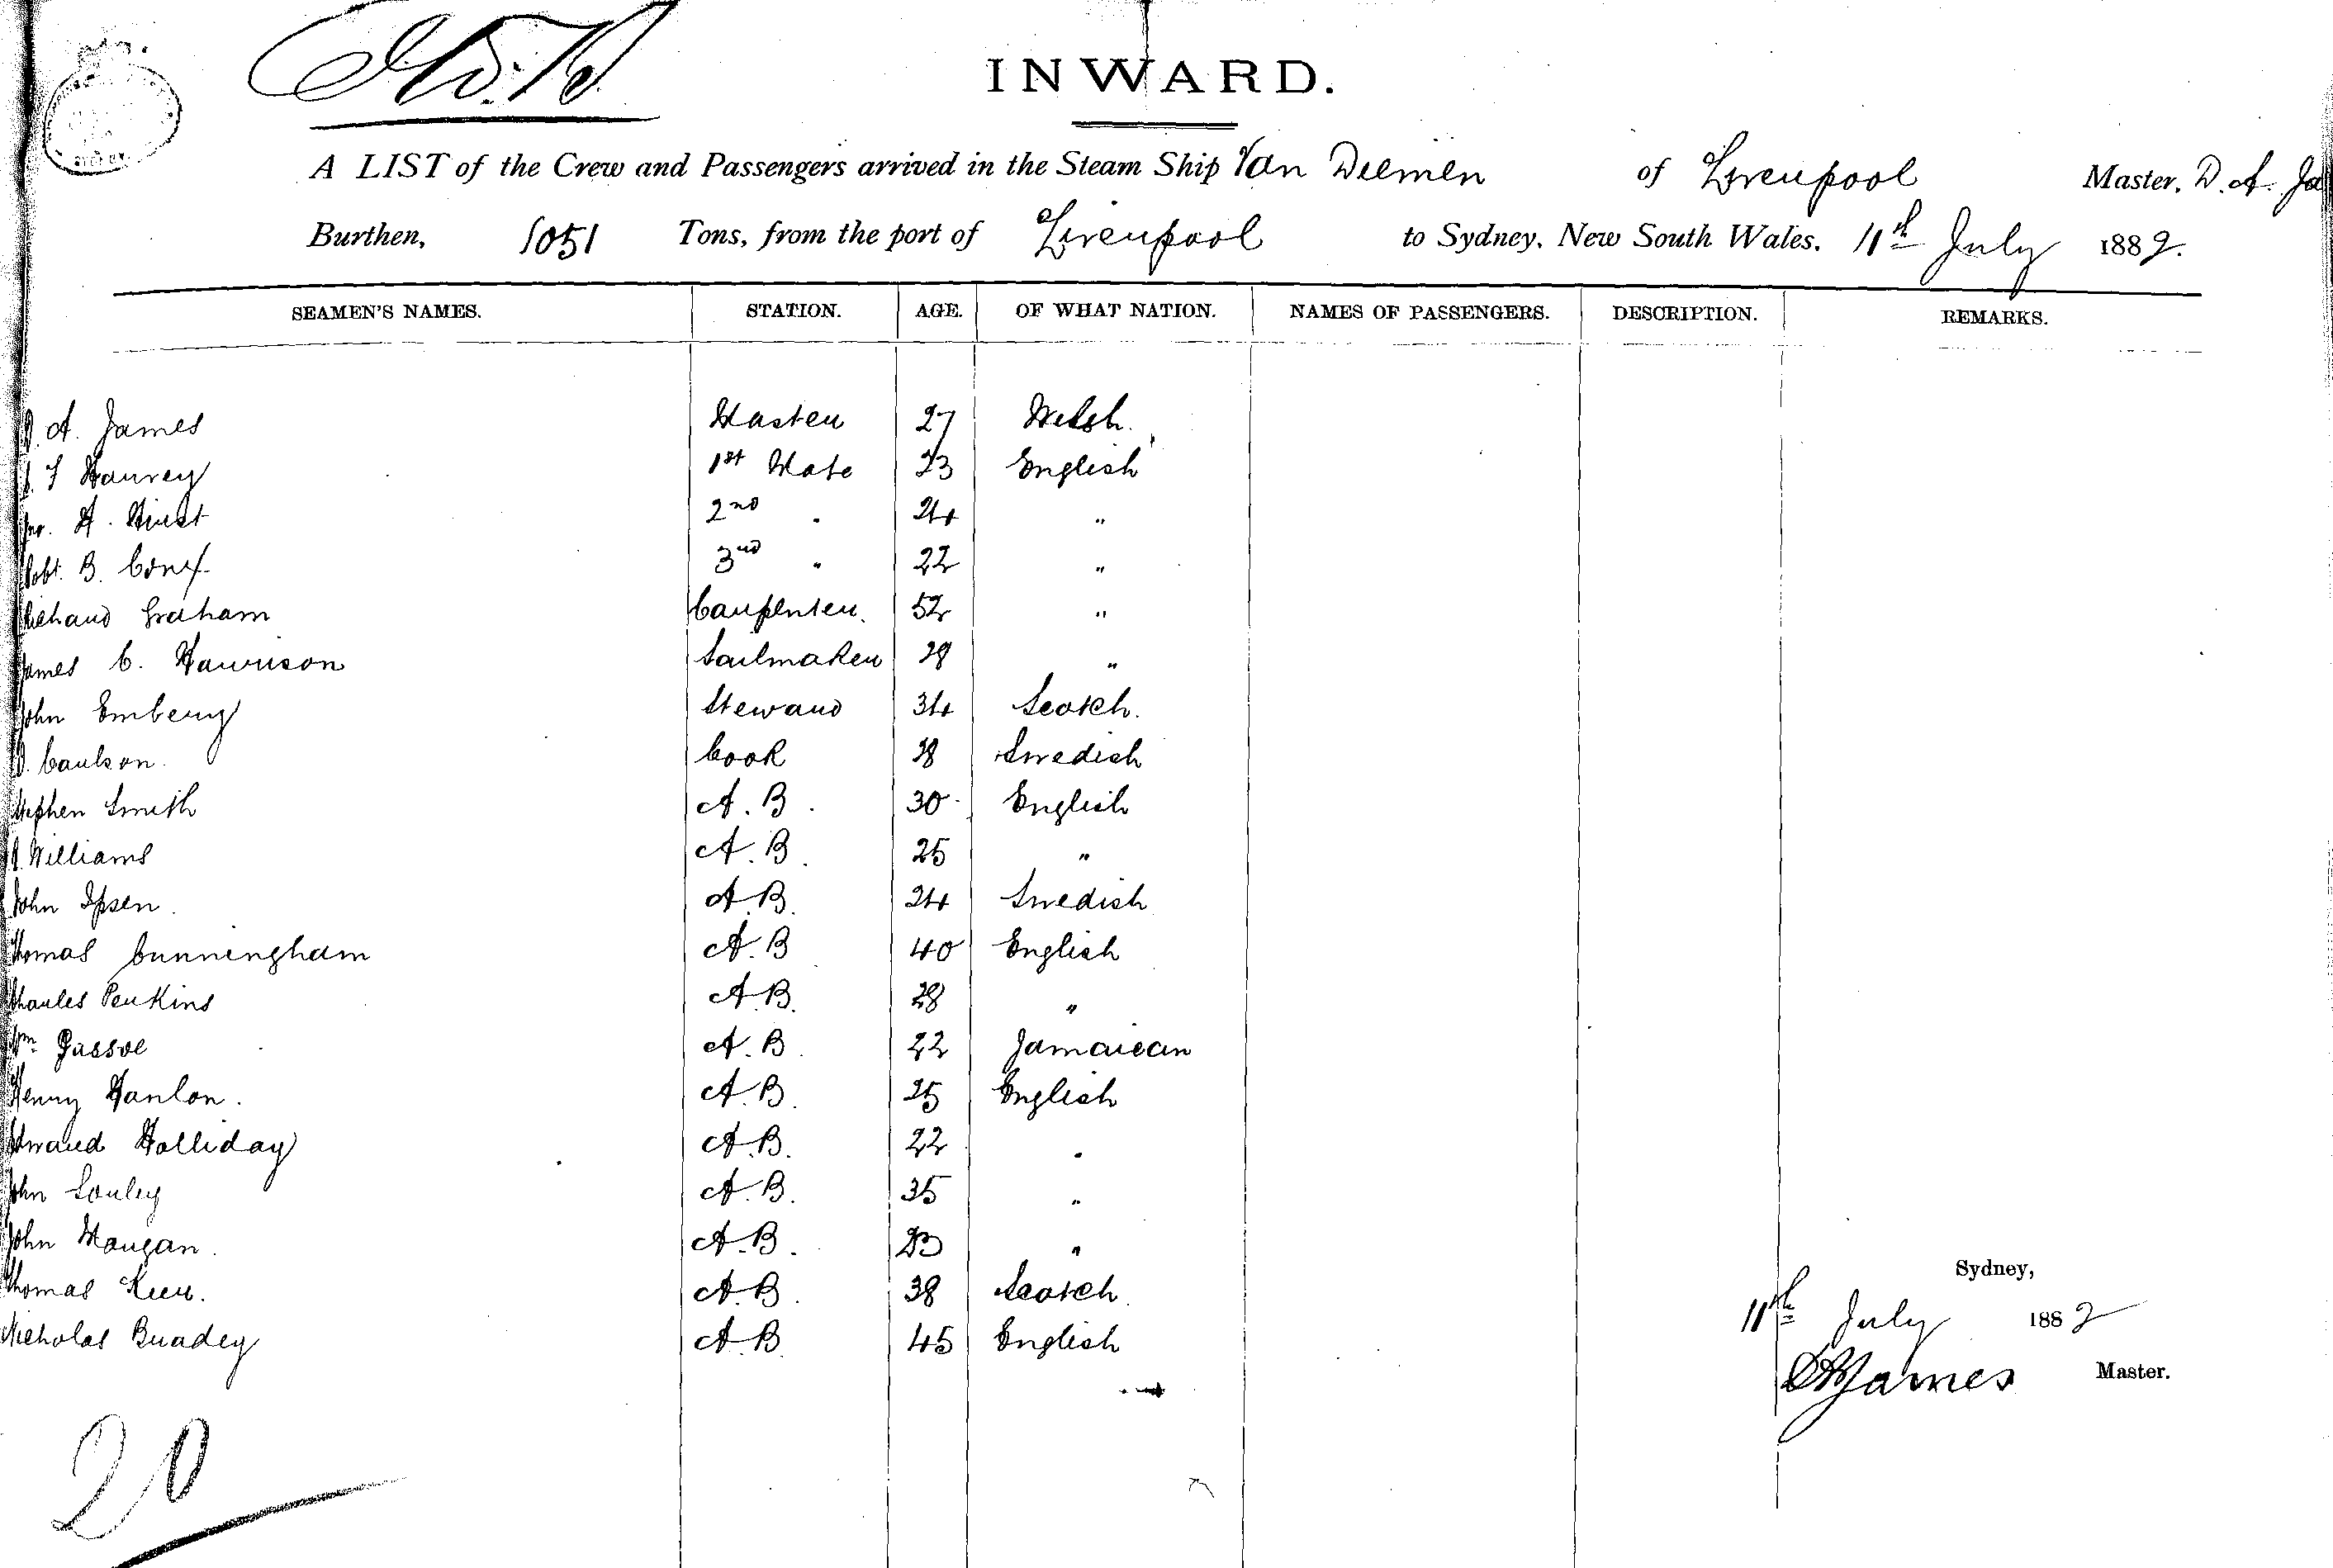 INWARD.
A LIST of the Crew and Passengers arrived in the Steam Ship Van Diemen of Liverpool Master, D. A. Ja
Burthen, 1051 Tons, from the port of Liverpool to Sydney, New South Wales, 11th July 1882.
SEAMEN'S NAMES. STATION. AGE. OF WHAT NATION. NAMES OF PASSENGERS. DESCRIPTION. REMARKS.
A. James Master 27 Welsh.
Harvey 1st Mate 23 English
H. Hirst 2nd " 24 "
Robt. B. 3rd " 22 "
Richard Graham Carpenter. 52 "
James C. Harrison Sailmaker 28 "
John Embery Steward 34 Scotch.
Carlson. Cook 38 Swedish
Stephen Smith A. B. 30 English
Williams A. B. 25 "
John Ipsen. A. B. 24 Swedish
Thomas Cunningham A. B. 40 English
Charles Perkins A. B. 28 "
Wm A. B. 22 Jamaican
Henry Hanlon. A. B. 25 English
Edward Holliday A. B. 22 "
John A. B. 35 "
John Morgan. A. B. "
Thomas Kerr. A. B. 38 Scotch
Nicholas Bradey A. B. 45 English
Sydney,
11th July 1882
DAJames Master.
20